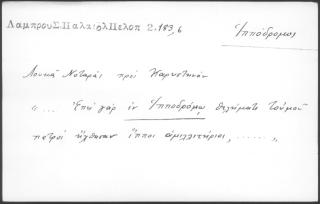 Λαμπρου Σ. Παλαιολ Πελοπ 2,183,6
Ἱππόδρομος
Λουκᾶ Νοταρᾶ πρὸς Καρυστηνόν
"... Ἐπεὶ γὰρ ἐν Ἱπποδρόμῳ θελήματι τοὐμοῦ
πατρὸς ἤχθησαν ἵπποι ἁμιλλητήριοι, ...... "